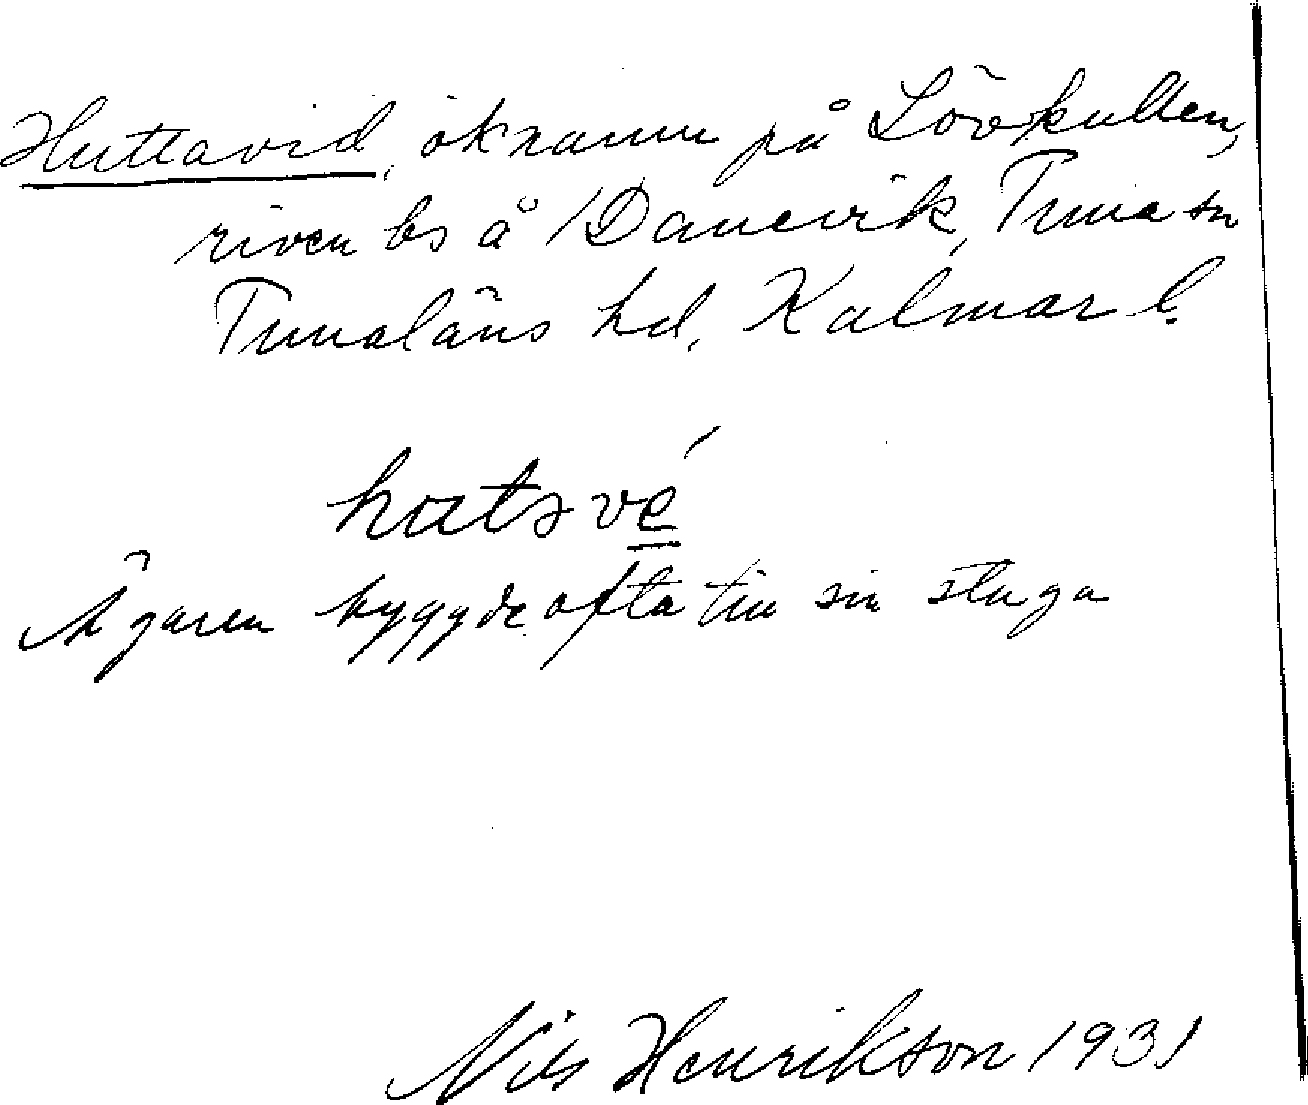 Huttavid, öknamn på Lövkullen,
riven bs å Danevik, Tuna sn
Tunaläns hd, Kalmar l.
hutsvé
Ägaren byggde ofta till sin stuga
Nils Henrikson 1931